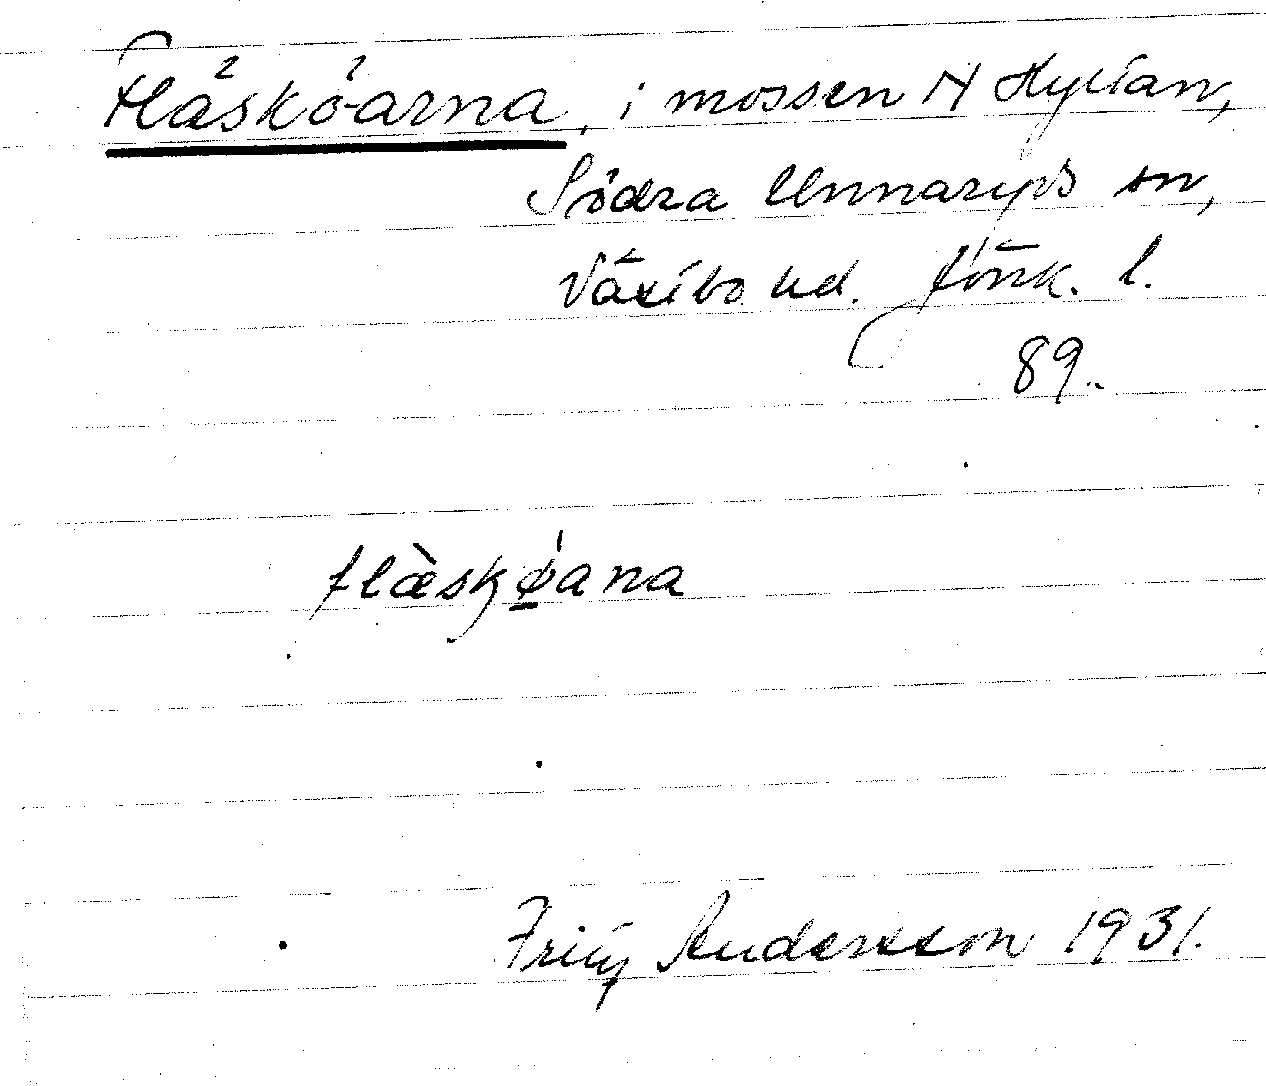 Fläsköarna, i mossen N Hyltan,
Södra Unnaryds sn,
Västbo hd. Jönk. l.
89.
flæskøana
Fritz Andersson 1931.